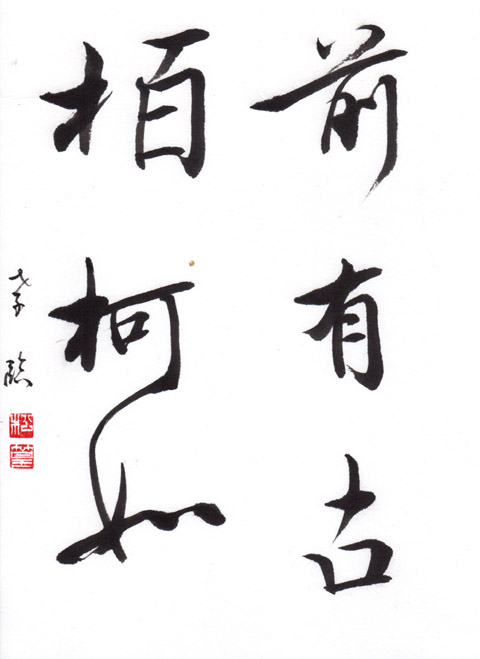 前有古
柏柯如
臨